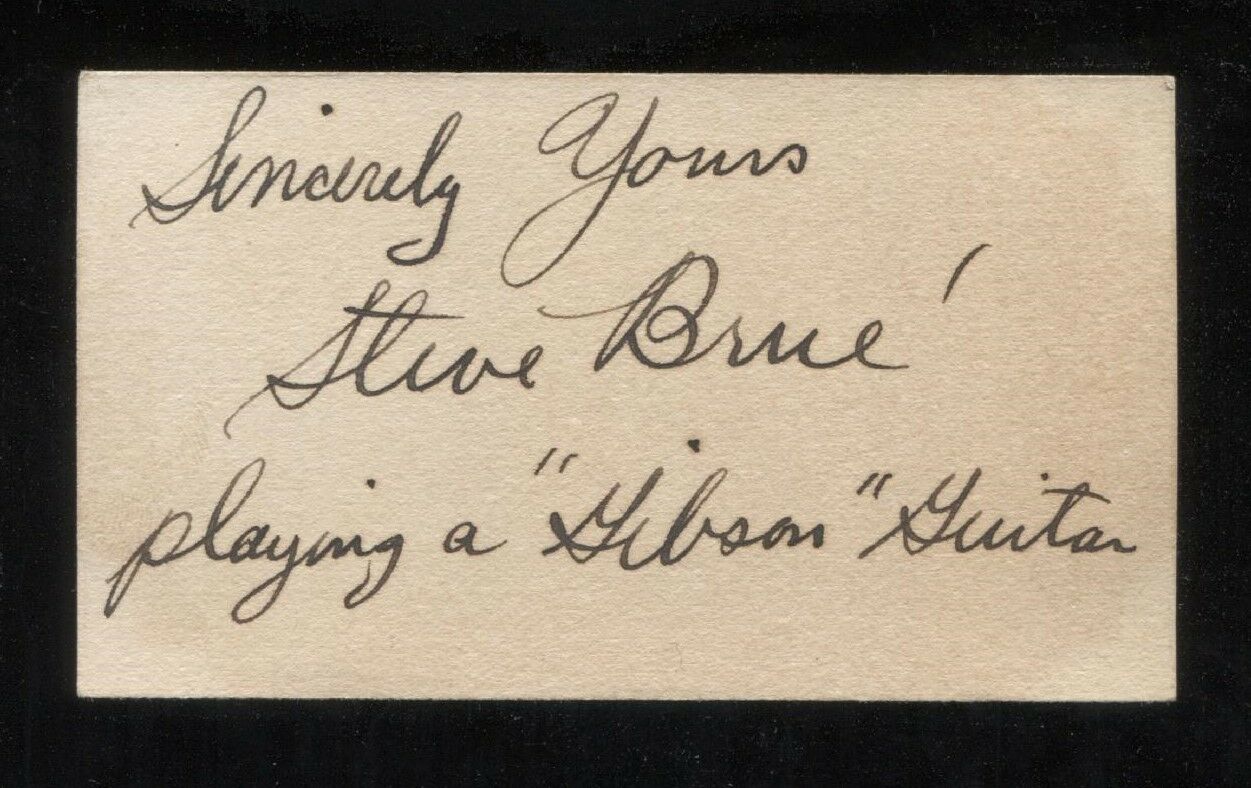 Sincerely Yours
Steve Brué
playing a "Gibson" Guitar